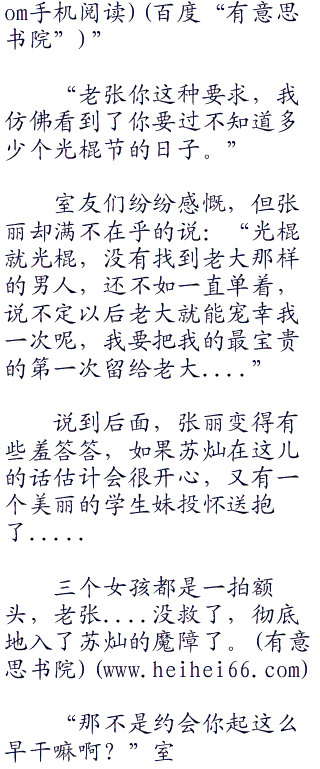 om手机阅读)(百度“有意思
书院”)”
“老张你这种要求，我
仿佛看到了你要过不知道多
少个光棍节的日子。”
室友们纷纷感慨，但张
丽却满不在乎的说：“光棍
就光棍，没有找到老大那样
的男人，还不如一直单着，
说不定以后老大就能宠幸我
一次呢，我要把我的最宝贵
的第一次留给老大....”
说到后面，张丽变得有
些羞答答，如果苏灿在这儿
的话估计会很开心，又有一
个美丽的学生妹投怀送抱
了.....
三个女孩都是一拍额
头，老张....没救了，彻底
地入了苏灿的魔障了。(有意
思书院)(www.heihei66.com)
“那不是约会你起这么
早干嘛啊？”室